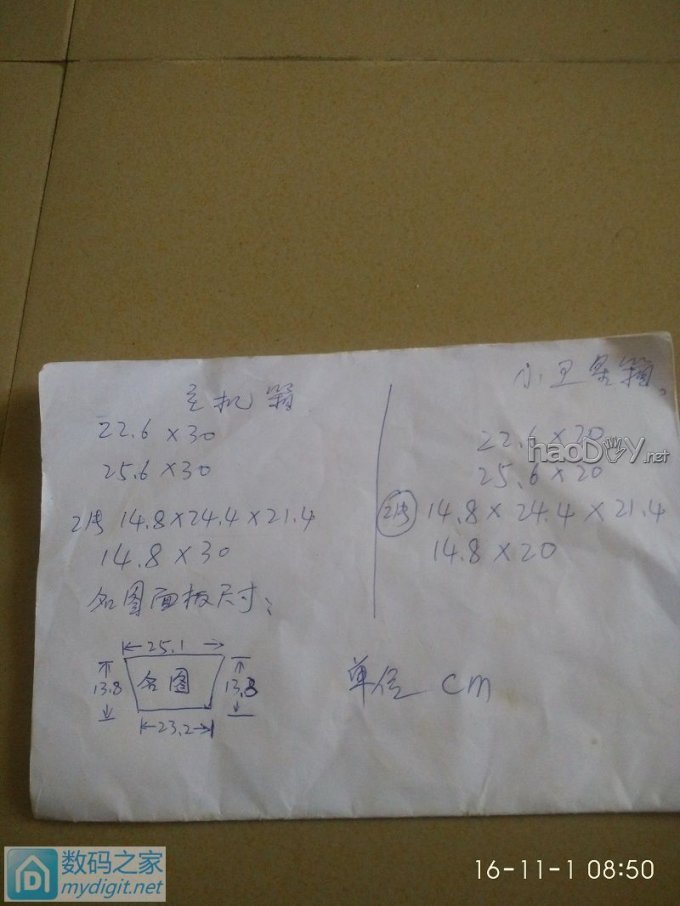 主机箱
22.6×30
25.6×30
2件 14.8×24.4×21.4
14.8×30
名图面板尺寸:
25.1
13.8
名图
13.8
23.2
小卫星箱
22.6×20
25.6×20
2件 14.8×24.4×21.4
14.8×20
单位 cm
haoDIY.net
数码之家
mydigit.net
16-11-1 08:50